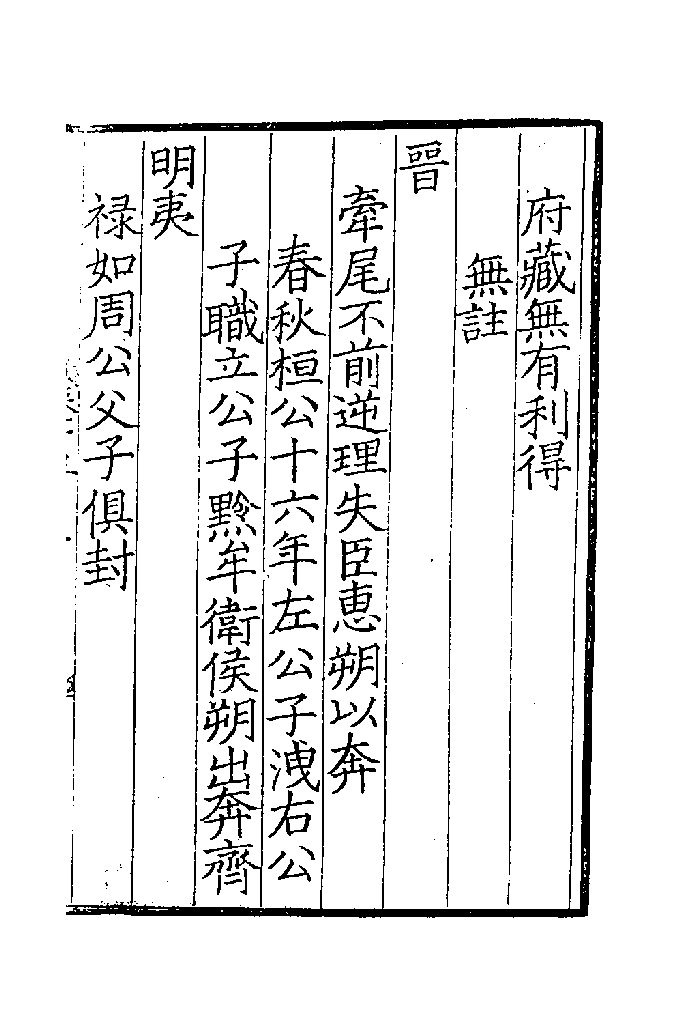 府藏無有利得
無註
晉
牽尾不前逆理失臣惠朔以奔
春秋桓公十六年左公子洩右公
子職立公子黔牟衛侯朔出奔齊
明夷
祿如周公父子俱封